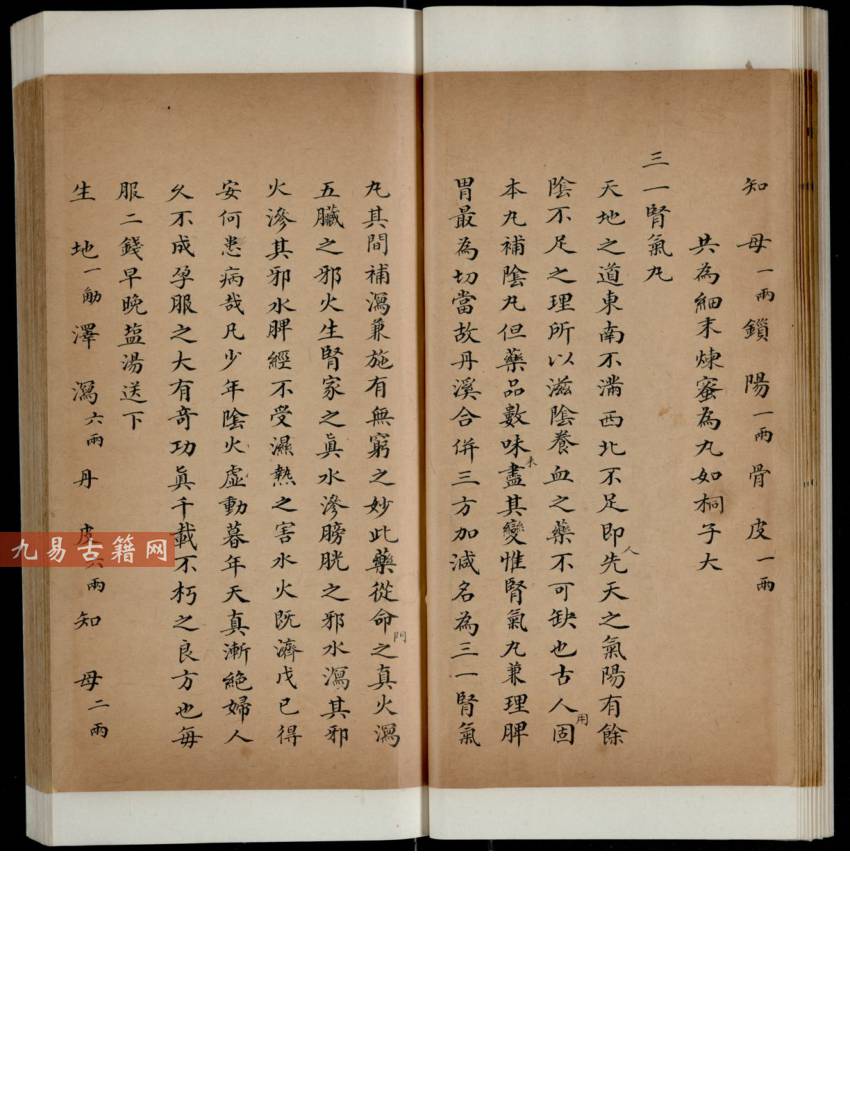 知母一兩鎖陽一兩骨皮一兩
共為細末煉蜜為丸如桐子大
三一腎氣丸
天地之道東南不滿西北不足即人先天之氣陽有餘
陰不足之理所以滋陰養血之藥不可缺也古人用固
本丸補陰丸但藥品數味未盡其變惟腎氣丸兼理脾
胃最為切當故丹溪合併三方加減名為三一腎氣
丸其間補瀉兼施有無窮之妙此藥從命門之真火瀉
五臟之邪火生腎家之真水滲膀胱之邪水瀉其邪
火滲其邪水脾經不受濕熱之害水火既濟戊已得
安何患病哉凡少年陰火虛動暮年天真漸絕婦人
久不成孕服之大有奇功真千載不朽之良方也每
服二錢早晚盐湯送下
生地一觔澤瀉六兩丹皮六兩知母二兩
九易古籍网